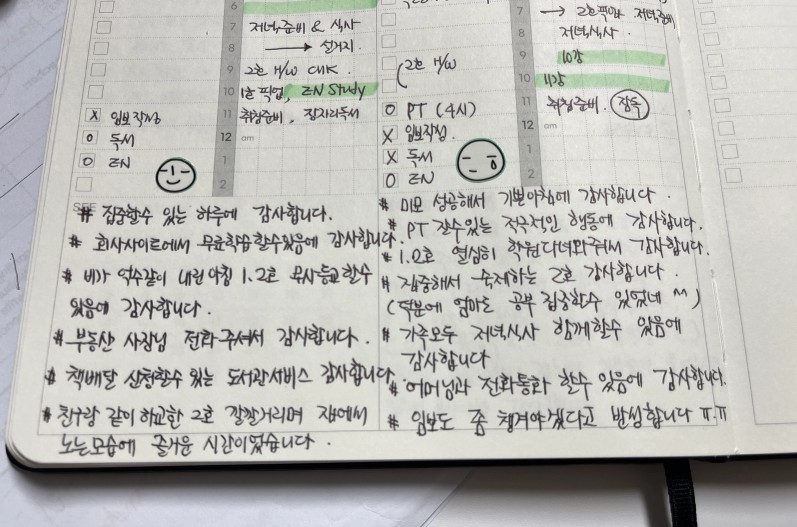 6
7 저녁준비 & 식사
8 → 설거지
9 2호 H/W CHK.
10 1호 픽업, EN Study
11 취침준비, 잠자리독서
12 am
1
2
X 임보작성
O 독서
O EN
SEE
# 집중할수 있는 하루에 감사합니다.
# 회사사이트에서 무료학습할수있음에 감사합니다.
# 비가 억수같이 내린 아침 1.2호 무사등교할수
있음에 감사합니다.
# 부동산 사장님 전화주셔서 감사합니다.
# 책배달 신청할수 있는 도서관서비스 감사합니다.
# 친구랑 같이 하교한 2호 깔깔거리며 집에서
노는모습에 즐거운 시간이었습니다.
7 → 2호픽업 저녁준비
8 저녁식사.
9 10강
10 11강
11 취침준비. 잠독
12 am
1
2
2호 H/W
O PT (4시)
X 임보작성.
X 독서
O EN
# 미모 성공해서 기분아침에 감사합니다.
# PT 갈수있는 적극적인 행동에 감사합니다.
# 1.2호 열심히 학원다녀와줘서 감사합니다.
# 집중해서 숙제하는 2호 감사합니다.
(덕분에 엄마도 공부 집중할수 있었네 ^^)
# 가족모두 저녁식사 함께할수 있음에
감사합니다
# 어머님과 전화통화 할수 있음에 감사합니다.
# 임보도 좀 챙겨야겠다고 반성합니다 ㅠ.ㅠ